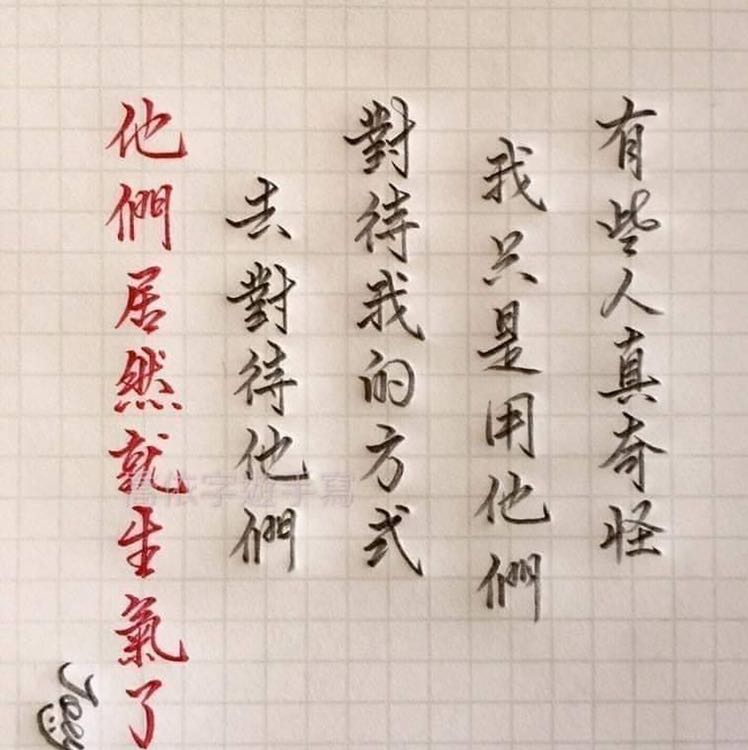 有些人真奇怪
我只是用他們
對待我的方式
去對待他們
他們居然就生氣了
喬依字遊手寫
Joey